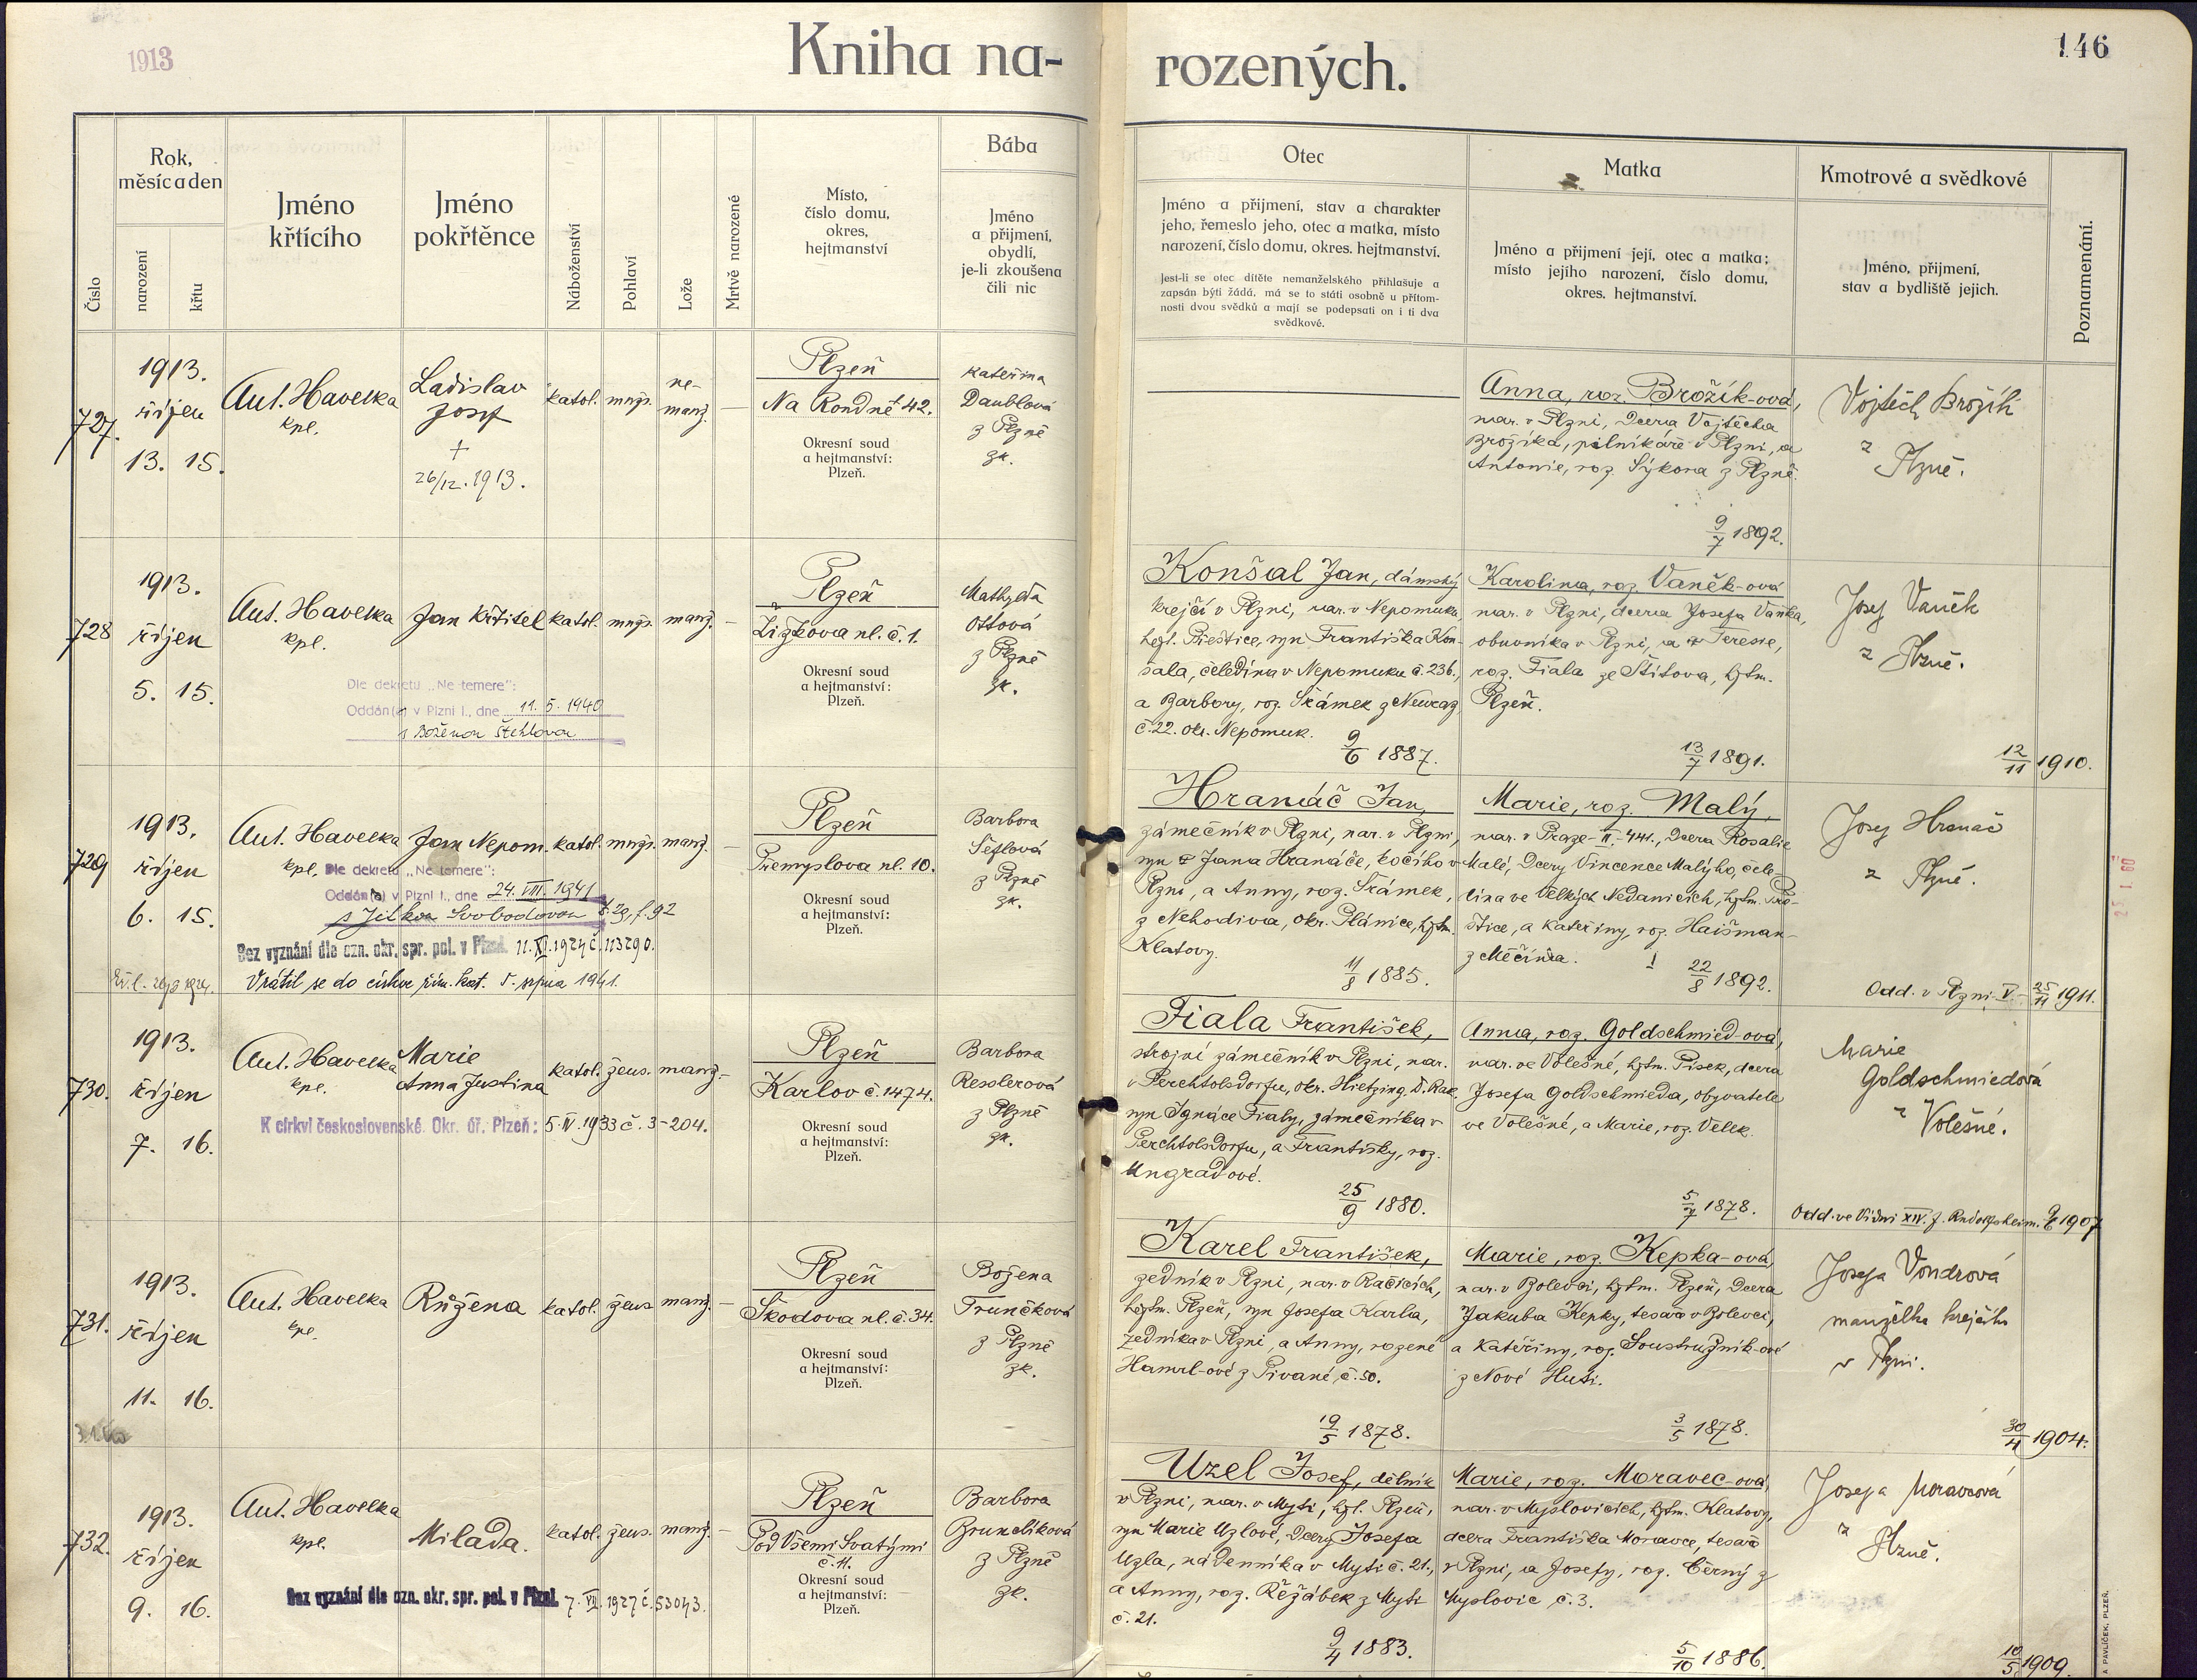 1913
Kniha na-
rozených.
146
Číslo
Rok,
měsíc a den
narození
křtu
Jméno
křtícího
Jméno
pokřtěnce
Náboženství
Pohlaví
Lože
Mrtvě narozené
Místo,
číslo domu,
okres,
hejtmanství
Bába
Jméno
a přijmení,
obydlí,
je-li zkoušena
čili nic
Otec
Jméno a přijmení, stav a charakter
jeho, řemeslo jeho, otec a matka, místo
narození, číslo domu, okres. hejtmanství.
Jest-li se otec dítěte nemanželského přihlašuje a
zapsán býti žádá, má se to státi osobně u přítom-
nosti dvou svědků a mají se podepsati on i ti dva
svědkové.
Matka
Jméno a přijmení její, otec a matka;
místo jejího narození, číslo domu,
okres. hejtmanství.
Kmotrové a svědkové
Jméno, přijmení,
stav a bydliště jejich.
Poznamenání.
727.
1913.
říjen
13. 15.
Ant. Havelka
kpl.
Ladislav
Josef
+
26/12. 1913.
katol.
mužs.
ne-
manž.
—
Plzeň
Na Rondně č 42.
Okresní soud
a hejtmanství:
Plzeň.
Kateřina
Daublová
z Plzně
zk.
Anna, roz. Brožík-ová,
nar. v Plzni, dcera Vojtěcha
Brožíka, pilníkáře v Plzni, a
Antonie, roz. Sýkora z Plzně.
9/7 1892.
Vojtěch Brožík
z
Plzně.
728
1913.
říjen
5. 15.
Ant. Havelka
kpl.
Jan Křtitel
katol.
mužs.
manž.
—
Dle dekretu „Ne temere":
Oddán(a) v Plzni I., dne 11. 5. 1940
s Boženou Štehlovou
Plzeň
Žižkova ul. č. 1.
Okresní soud
a hejtmanství:
Plzeň.
Mathylda
Ottová
z Plzně
zk.
Konšal Jan, dámský
krejčí v Plzni, nar. v Nepomuku,
hejt. Přeštice, syn Františka Kon-
šala, čeledína v Nepomuku č. 236.,
a Barbory, roz. Šrámek z Neuraz
č. 22. okr. Nepomuk.
9/6 1887.
Karolina, roz. Vaněk-ová
nar. v Plzni, dcera Josefa Vaňka,
obuvníka v Plzni, a Teresie,
roz. Fiala ze Štítova, hjtm.
Plzeň.
13/7 1891.
Josef Vaněk
z Plzně.
12/11 1910.
729
1913.
říjen
6. 15.
Ant. Havelka
kpl.
Jan Nepom.
katol.
mužs.
manž.
—
Dle dekretu „Ne temere":
Oddán(a) v Plzni I., dne 24. VIII. 1941
s Jitkou Svobodovou č. 29, f. 92
Bez vyznání dle ozn. okr. spr. pol. v Plzni. 11. XI. 1924 č. 113290.
Vrátil se do církve řím. kat. 5. srpna 1941.
Plzeň
Přemyslova ul. 10.
Okresní soud
a hejtmanství:
Plzeň.
Barbora
Šeflová
z Plzně
zk.
Hranáč Jan,
zámečník v Plzni, nar. v Plzni,
syn Jana Hranáče, kočího v
Plzni, a Anny, roz. Šrámek,
z Nehodiva, okr. Plánice, hjtm.
Klatovy.
11/8 1885.
Marie, roz. Malý,
nar. v Praze-II.-441., dcera Rosalie
Malé, dcery Vincence Malýho, čele-
dína ve Velkých Nedanicích, hjtm. Pře-
štice, a Kateřiny, roz. Haišman
z Měčína.
22/8 1892.
Josef Hranáč
z Plzně.
Odd. v Plzni V. 25/11 1911.
25. 1. 60
730.
1913.
říjen
7. 16.
Ant. Havelka
kpl.
Marie
Anna Justina
katol.
žens.
manž.
—
K církvi československé. Okr. úř. Plzeň: 5. IV. 1933 č. 3-204.
Plzeň
Karlov č. 1474.
Okresní soud
a hejtmanství:
Plzeň.
Barbora
Resslerová
z Plzně
zk.
Fiala František,
strojní zámečník v Plzni, nar.
v Perchtolsdorfu, okr. Hietzing, D. Rak.
syn Ignáce Fialy, zámečníka v
Perchtolsdorfu, a Františky, roz.
Ungradové.
25/9 1880.
Anna, roz. Goldschmied-ová,
nar. ve Volešné, hjtm. Písek, dcera
Josefa Goldschmieda, obyvatele
ve Volešné, a Marie, roz. Velek.
5/7 1878.
Marie
Goldschmiedová
z
Volešné.
Odd. ve Vídni XIV. f. Rudolfsheim. 1907
731.
1913.
říjen
11. 16.
Ant. Havelka
kpl.
Růžena
katol.
žens
manž.
—
Plzeň
Škodova ul. č. 34.
Okresní soud
a hejtmanství:
Plzeň.
Božena
Trunčková
z Plzně
zk.
Karel František,
zedník v Plzni, nar. v Račicích,
hejtm. Plzeň, syn Josefa Karla,
zedníka v Plzni, a Anny, rozené
Hamrl-ové z Pivaně č. 50.
19/5 1878.
Marie, roz. Kepka-ová,
nar. v Bolevci, hjtm. Plzeň, dcera
Jakuba Kepky, tesaře v Bolevci,
a Kateřiny, roz. Soustružník-ové
z Nové Huti.
3/5 1878.
Josefa Vondrová
manželka krejčího
v Plzni.
30/4 1904.
732.
1913.
říjen
9. 16.
Ant. Havelka
kpl.
Milada.
katol.
žens.
manž.
—
Bez vyznání dle ozn. okr. spr. pol. v Plzni. 7. VII. 1927 č. 53043.
Plzeň
Pod Všemi Svatými
č. 11.
Okresní soud
a hejtmanství:
Plzeň.
Barbora
Brunclíková
z Plzně
zk.
Uzel Josef, dělník
v Plzni, nar. v Myti, hjt. Plzeň,
syn Marie Uzlové, dcery Josefa
Uzla, nádenníka v Myti č. 21.,
a Anny, roz. Řežábek z Myti
č. 21.
9/4 1883.
Marie, roz. Moravec-ová,
nar. v Myslovicích, hjtm. Klatovy,
dcera Františka Moravce, tesaře
v Plzni, a Josefy, roz. Černý z
Myslovic č. 3.
5/10 1886.
Josefa Moravcová
z
Plzně.
10/5 1909.
A. PAVLÍČEK, PLZEŇ.